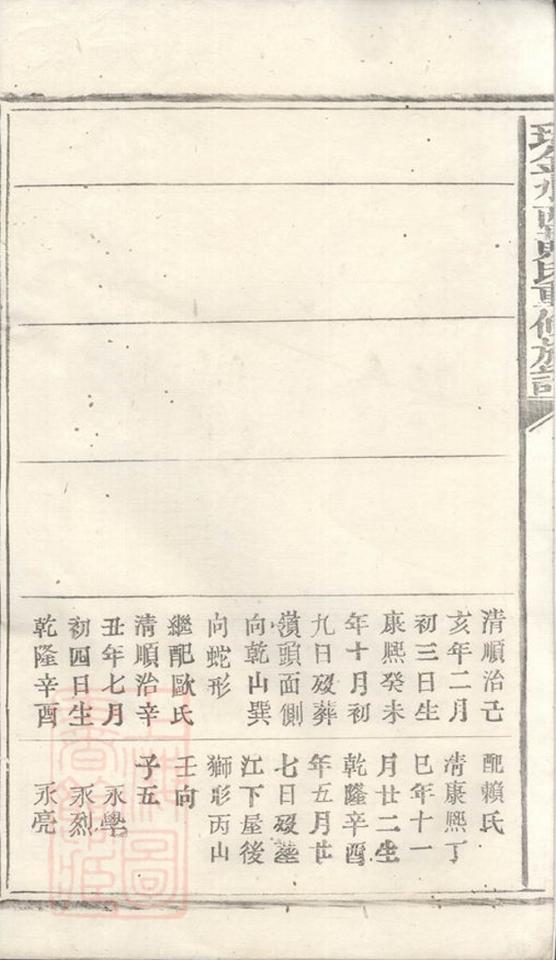 清順治己
亥年二月
初三日生
康熙癸未
年十月初
九日歿葬
嶺頭面側
向乾山巽
向蛇形
繼配歐氏
清順治辛
丑年七月
初四日生
乾隆辛酉
配賴氏
清康熙丁
巳年十一
月廿二生
乾隆辛酉
年五月廿
七日歿塟
江下屋後
獅形丙山
壬向
子五
永學
永烈
永亮